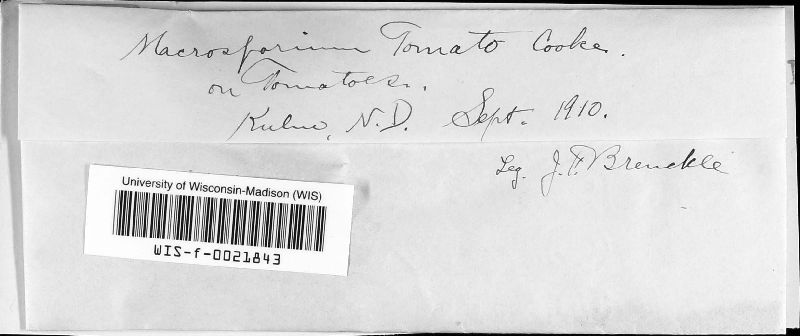 Macrosporium Tomato Cooke.
on Tomatoes.
Kulm, N.D. Sept. 1910.
Leg. J. F. Brenckle
University of Wisconsin-Madison (WIS)
WIS-f-0021843